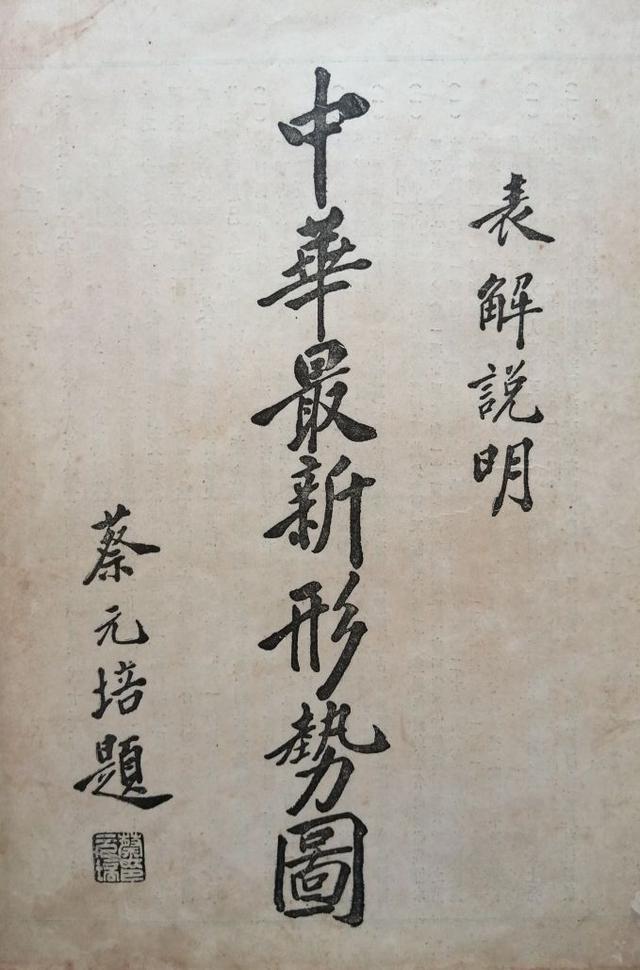 表解説明
中華最新形勢圖
蔡元培題